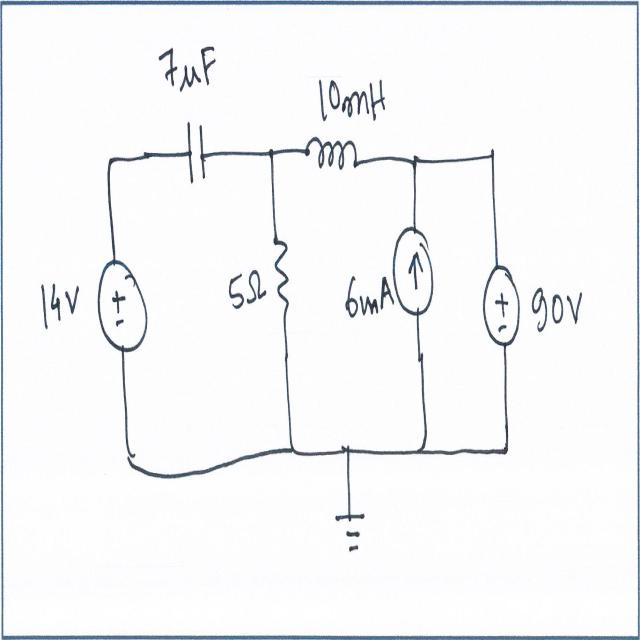 7μF
10mH
14V
+
-
5Ω
6mA
+
-
90V